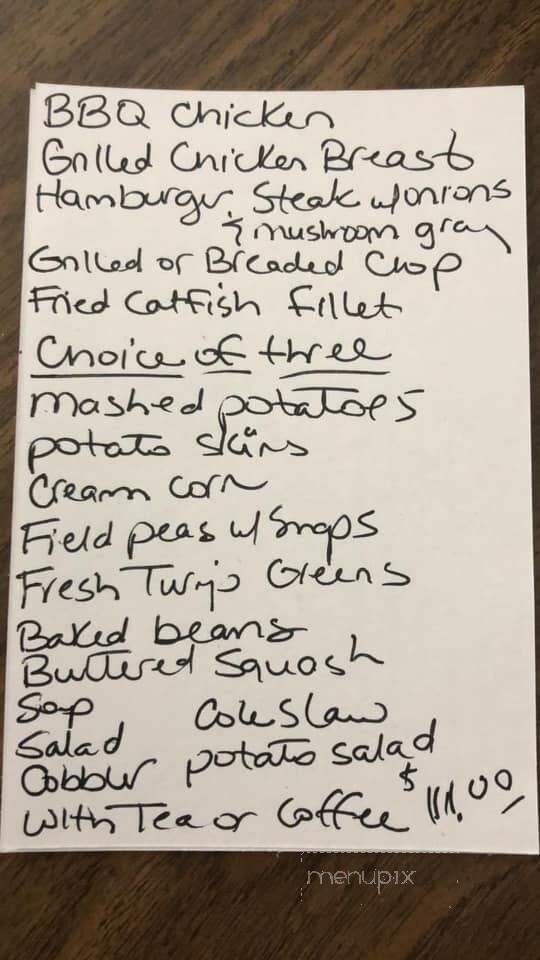 BBQ Chicken
Grilled Chicken Breast
Hamburger Steak w/onions
& mushroom gravy
Grilled or Breaded Chop
Fried Catfish fillet
Choice of three
mashed potatoes
potato skins
Cream corn
Field peas w/ Snaps
Fresh Turnip Greens
Baked beans
Buttered Squash
Soup Coleslaw
Salad
Cobbler potato salad
With Tea or Coffee $
menupix